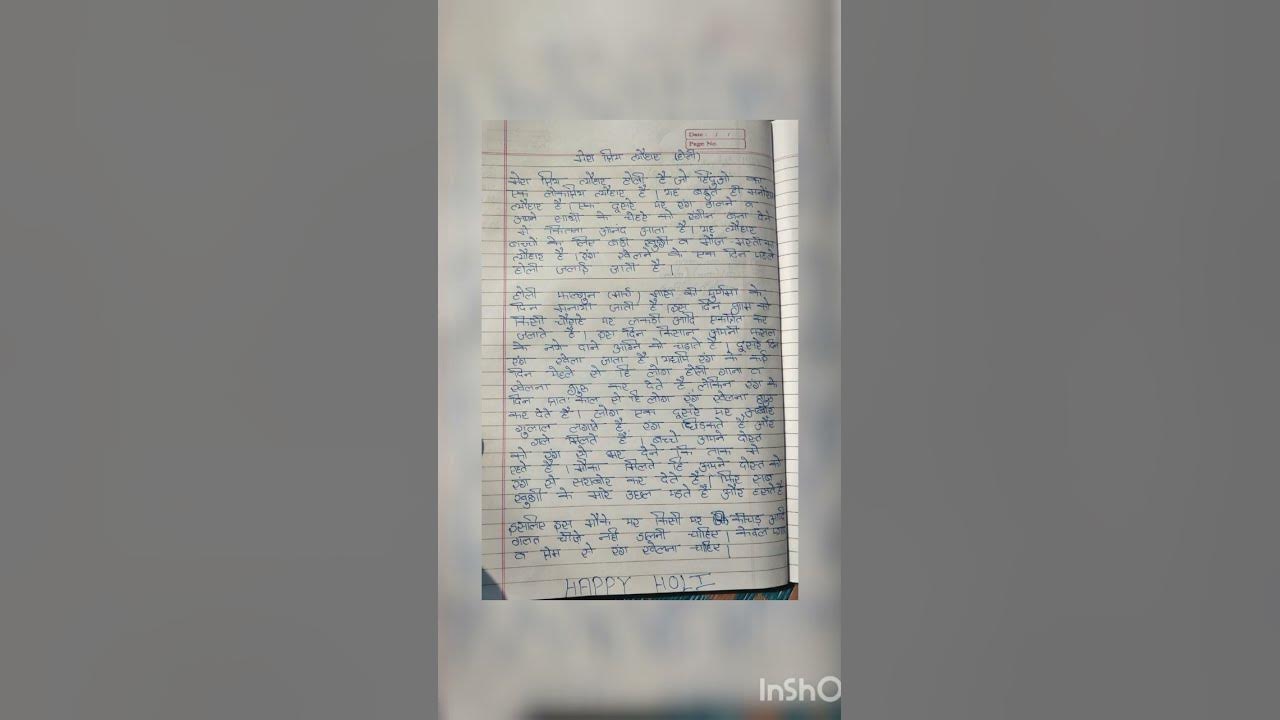 Date : / /
Page No.
मेरा प्रिय त्यौहार (होली)
मेरा प्रिय त्यौहार होली है जो हिंदुओ का
एक लोकप्रिय त्यौहार है । यह बहुत ही
त्यौहार है । एक दूसरे पर रंग डालने व
अपने साथी के चेहरे को रंगीन बना देने
से कितना आनंद आता है । यह त्यौहार
बच्चों के लिए बडी खुशी व मौज मस्ती का
त्यौहार है । रंग खेलने के एक दिन पहले
होली जलाई जाती है ।
होली फाल्गुन (मार्च) मास की पुर्णमा के
दिन मनायी जाती है । इस दिन शाम को
किसी चौराहे पर लकडी आदि एकत्रित कर
जलाते है । इस दिन किसान अपनी फसल
के नये दाने अग्नि को चढ़ाते है । दूसरे दिन
रंग खेला जाता है । यद्यपि रंग के कई
दिन पेहले से हि लोग होली गाना व
खेलना शुरू कर देते है लेकिन रंग के
दिन प्रात काल से हि लोग रंग खेलना शुरू
कर देते है । लोग एक दूसरे पर अबीर
गुलाल लगाते है रंग छिडकते है और
गले मिलते है । बच्चे अपने दोस्त
को रंग से भर देने कि ताक मे
रहते है । मौका मिलते हि अपने दोस्त को
रंग से सराबोर कर देते है । फिर सब
खुशी के मारे उछल पडते है और हसते है
इसलिए इस मौके पर किसी पर कीचड़ आदि
गलत चीजे नही डालनी चाहिए । केवल प्यार
व प्रेम से रंग खेलना चाहिए ।
HAPPY HOLI
InShO